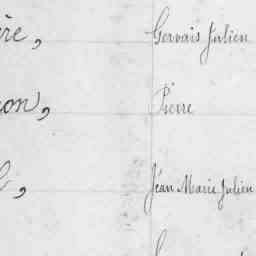 ère, Gervais Julien
on, Pierre
, Jean Marie Julien